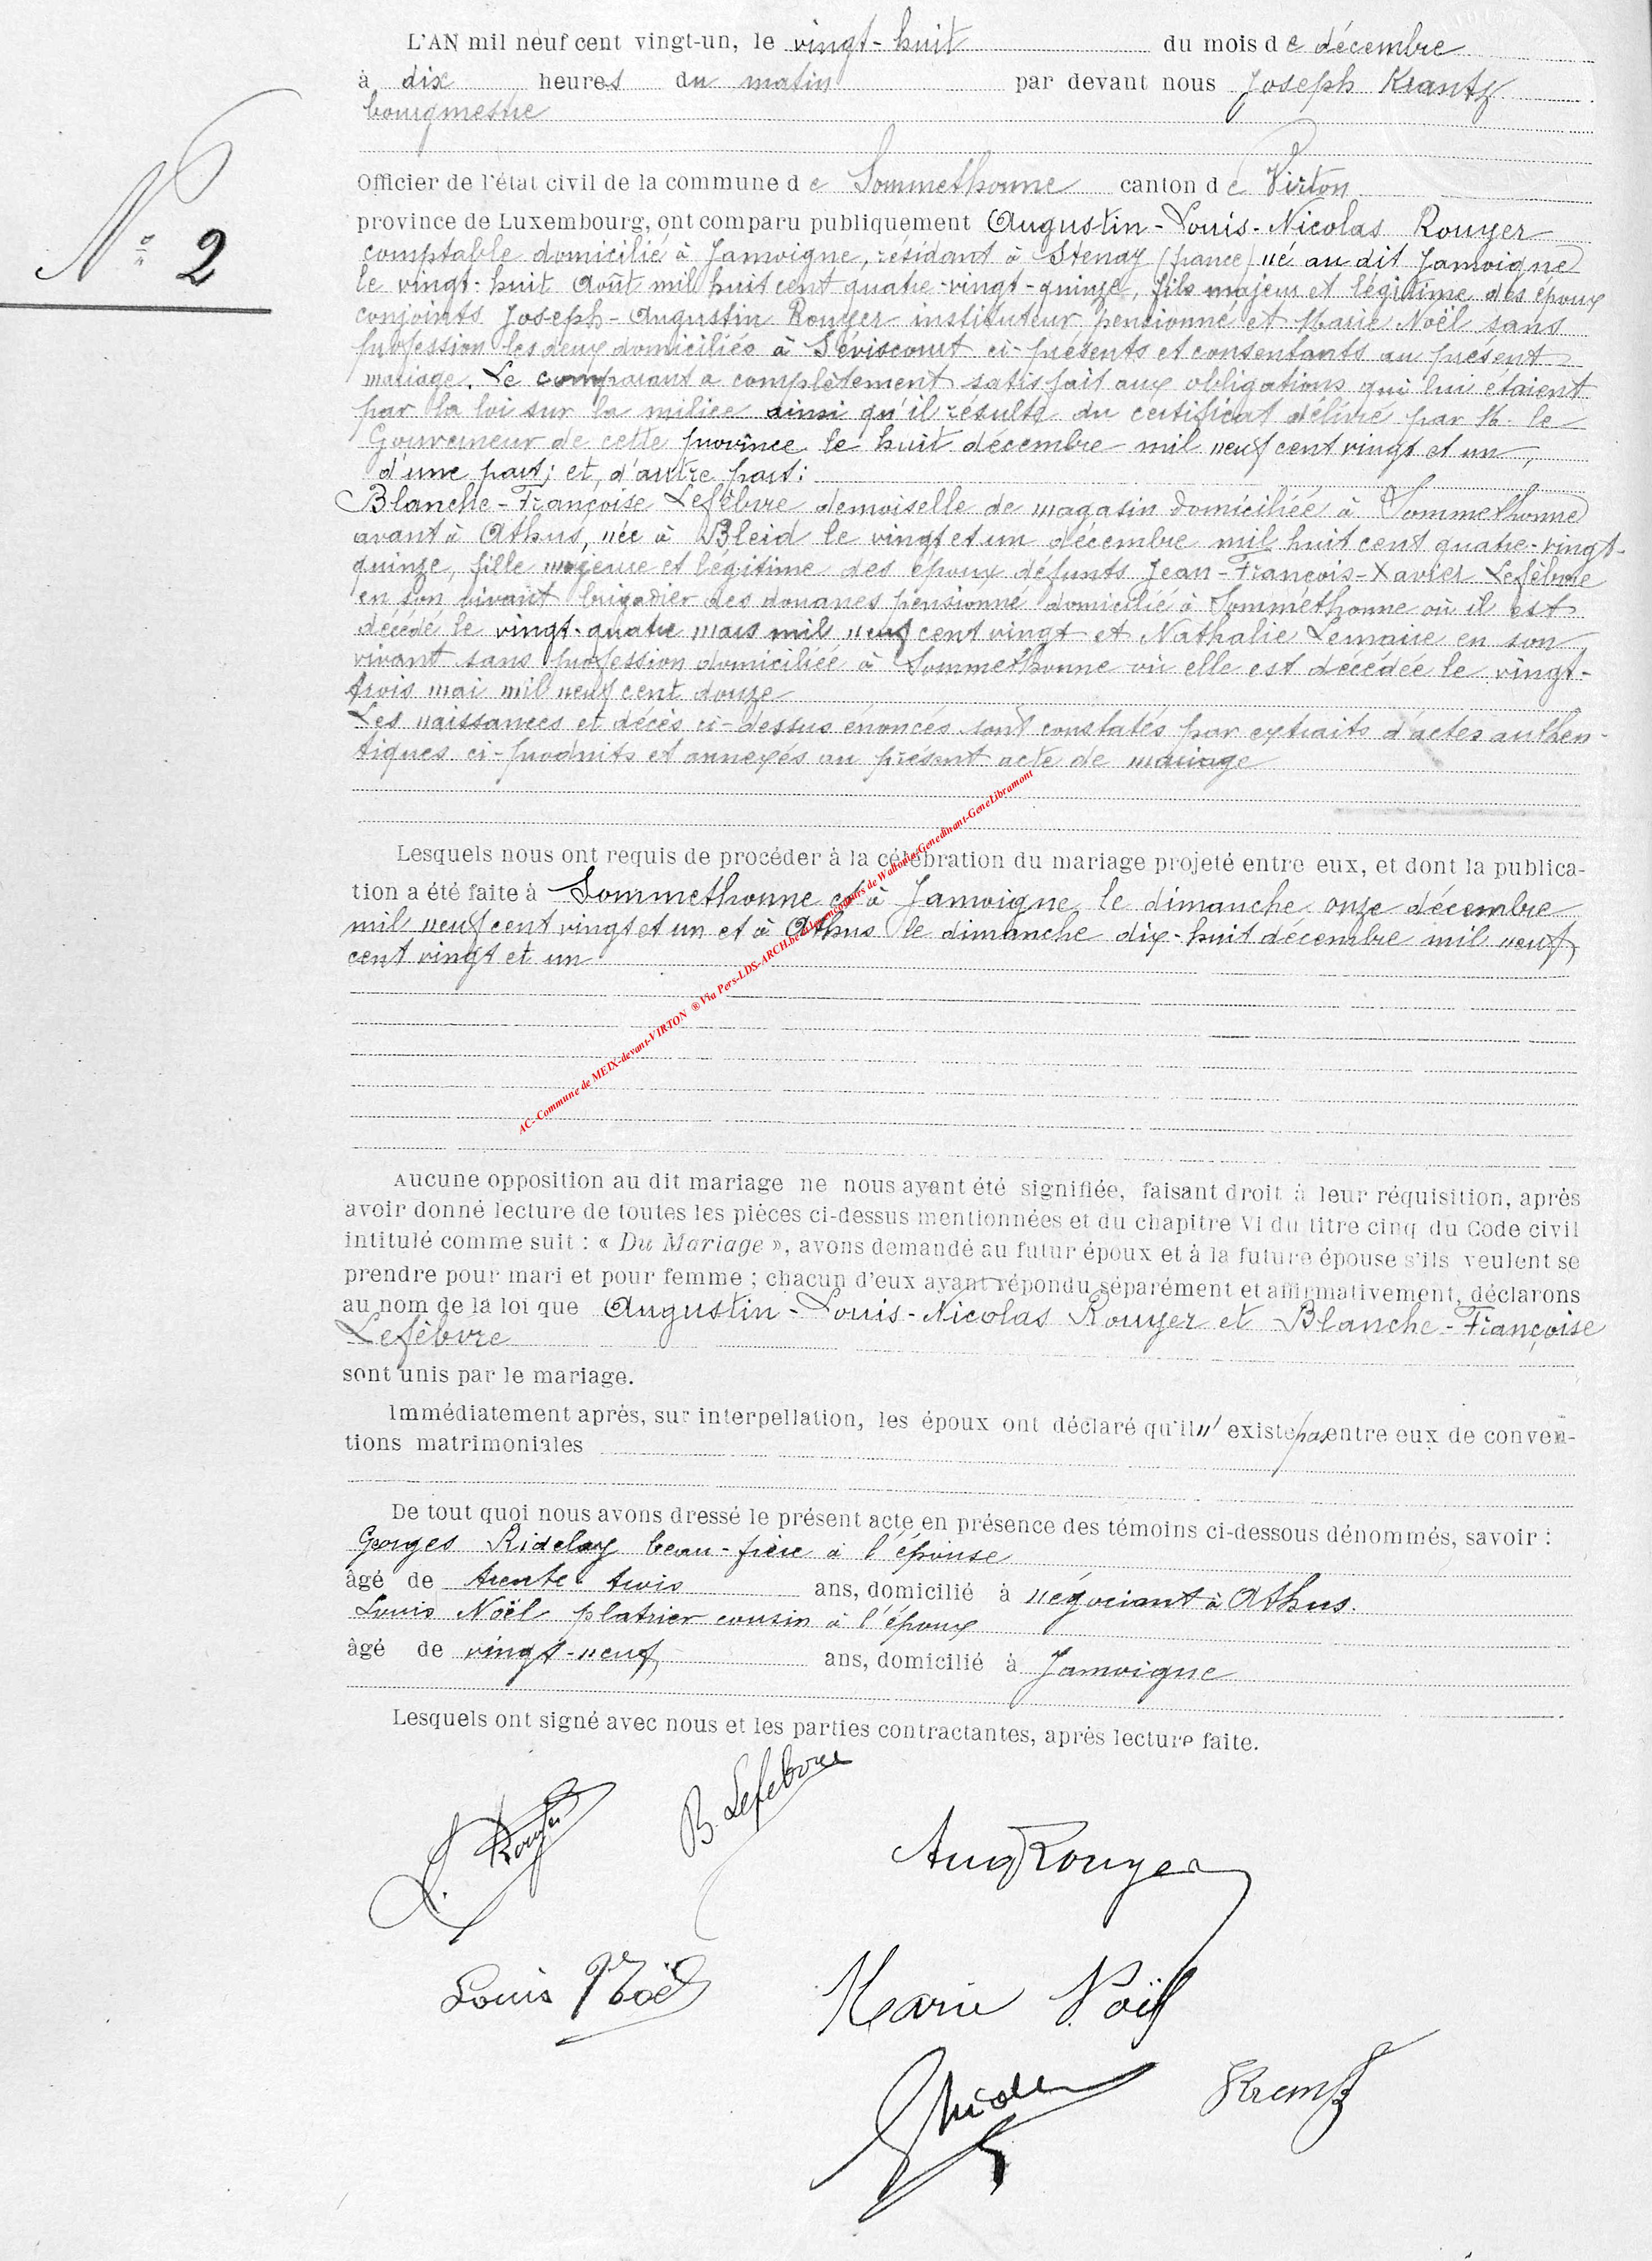 L'AN mil neuf cent vingt-un, le vingt-huit du mois de décembre
à dix heures du matin par devant nous Joseph Krantz
bourgmestre
Officier de l'état civil de la commune de Sommethonne canton de Virton
N° 2
province de Luxembourg, ont comparu publiquement Augustin-Louis-Nicolas Rouyer
comptable domicilié à Jamoigne, résidant à Stenay (france) né au dit Jamoigne
le vingt-huit Août mil huit cent quatre-vingt-quinze, fils majeur et légitime des époux
conjoints Joseph-Augustin Rouyer instituteur pensionné et Marie Noël sans
profession les deux domiciliés à Séviscourt ci-présents et consentants au présent
mariage. Le comparant a complètement satisfait aux obligations qui lui étaient
par la loi sur la milice ainsi qu'il résulte du certificat délivré par M. le
Gouverneur de cette province le huit décembre mil neuf cent vingt et un,
d'une part; et, d'autre part:
Blanche-Françoise Lefèbvre demoiselle de magasin domiciliée à Sommethonne
avant à Athus, née à Bleid le vingt et un décembre mil huit cent quatre-vingt-
quinze, fille majeure et légitime des époux défunts Jean-François-Xavier Lefèbvre
en son vivant brigadier des douanes pensionné domicilié à Sommethonne où il est
décédé le vingt-quatre mars mil neuf cent vingt et Nathalie Lemaire en son
vivant sans profession domiciliée à Sommethonne où elle est décédée le vingt-
trois mai mil neuf cent douze
Les naissances et décès ci-dessus énoncés sont constatés par extraits d'actes authen-
tiques ci-produits et annexés au présent acte de mariage
Lesquels nous ont requis de procéder à la célébration du mariage projeté entre eux, et dont la publica-
tion a été faite à Sommethonne et à Jamoigne le dimanche onze décembre
mil neuf cent vingt et un et à Athus le dimanche dix-huit décembre mil neuf
cent vingt et un
AC- Commune de MEIX-devant-VIRTON ® Via Pers-LDS-ARCH.be de Wallonie-Genedinant-GeneLibramont
Aucune opposition au dit mariage ne nous ayant été signifiée, faisant droit à leur réquisition, après
avoir donné lecture de toutes les pièces ci-dessus mentionnées et du chapitre VI du titre cinq du Code civil
intitulé comme suit : « Du Mariage », avons demandé au futur époux et à la future épouse s'ils veulent se
prendre pour mari et pour femme ; chacun d'eux ayant répondu séparément et affirmativement, déclarons
au nom de la loi que Augustin-Louis-Nicolas Rouyer et Blanche-Françoise
Lefèbvre
sont unis par le mariage.
Immédiatement après, sur interpellation, les époux ont déclaré qu'il n'existe pas entre eux de conven-
tions matrimoniales
De tout quoi nous avons dressé le présent acte en présence des témoins ci-dessous dénommés, savoir :
Georges Ridelay beau-frère à l'épouse
âgé de trente-trois ans, domicilié à négociant à Athus.
Louis Noël platrier cousin à l'époux
âgé de vingt-neuf ans, domicilié à Jamoigne
Lesquels ont signé avec nous et les parties contractantes, après lecture faite.
L. Rouyer
B. Lefebvre
Aug Rouyer
Louis Noël
Marie Noël
Krantz